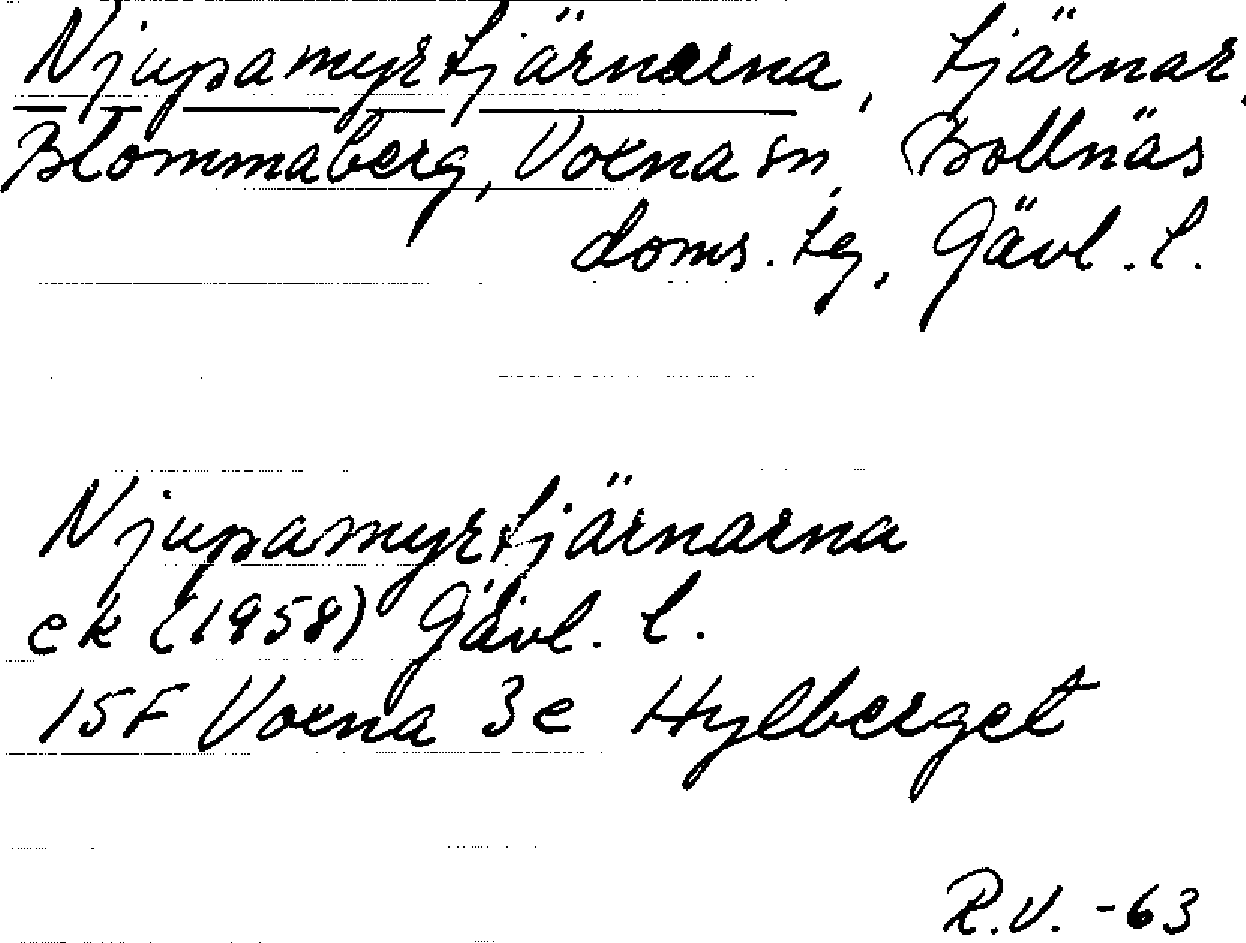 Njupamyrtjärnarna, tjärnar,
Blommaberg, Voxna sn, Bollnäs
doms. tg, Gävl. l.
Njupamyrtjärnarna
ek (1958) Gävl. l.
15F Voxna 3e Hylberget
R.V. -63